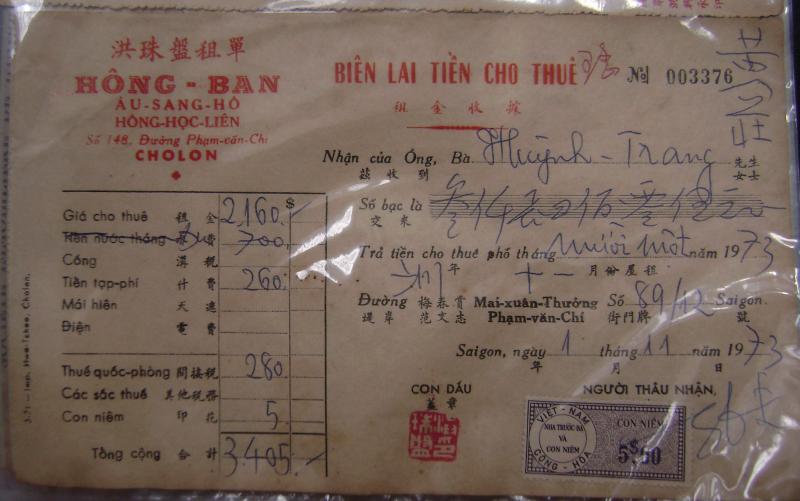 洪珠盤租單
HÔNG - BAN
ÂU-SANG-HÔ
HÔNG-HỌC-LIÊN
Số 148, Đường Phạm-văn-Chí
CHOLON
BIÊN LAI TIỀN CHO THUÊ
№ 003376
租金收條
Nhận của Ông, Bà Huỳnh-Trang 先生 女士
茲收到
Số bạc là 叁仟 佰零伍元
交來
Trả tiền cho thuê phố tháng mười một năm 1973
年 十一 月份屋租
Đường 梅春賞 Mai-xuân-Thưởng Số 89/12 Saigon.
堤岸 范文志 Phạm-văn-Chí 街門牌 號
Saigon, ngày 1 tháng 11 năm 1973
年 月 日
$
Giá cho thuê 租金 2,160.
Tiền nước tháng 水費 700.
Cống 溝税
Tiền tạp-phí 什費 260.
Mái hiên 天遮
Điện 電費
Thuế quốc-phòng 間接税 280.
Các sắc thuế 其他税務
Con niêm 印花 5.
Tổng cộng 合計 3.405.
CON DẤU
蓋章
NGƯỜI THÂU NHẬN,
VIỆT-NAM CỘNG-HÒA
NHA TRƯỚC BẠ VÀ CON NIÊM
CON NIÊM
5$00